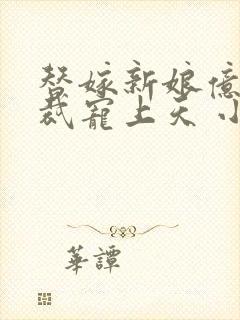 替嫁新娘億
裁寵上天 小
華譚